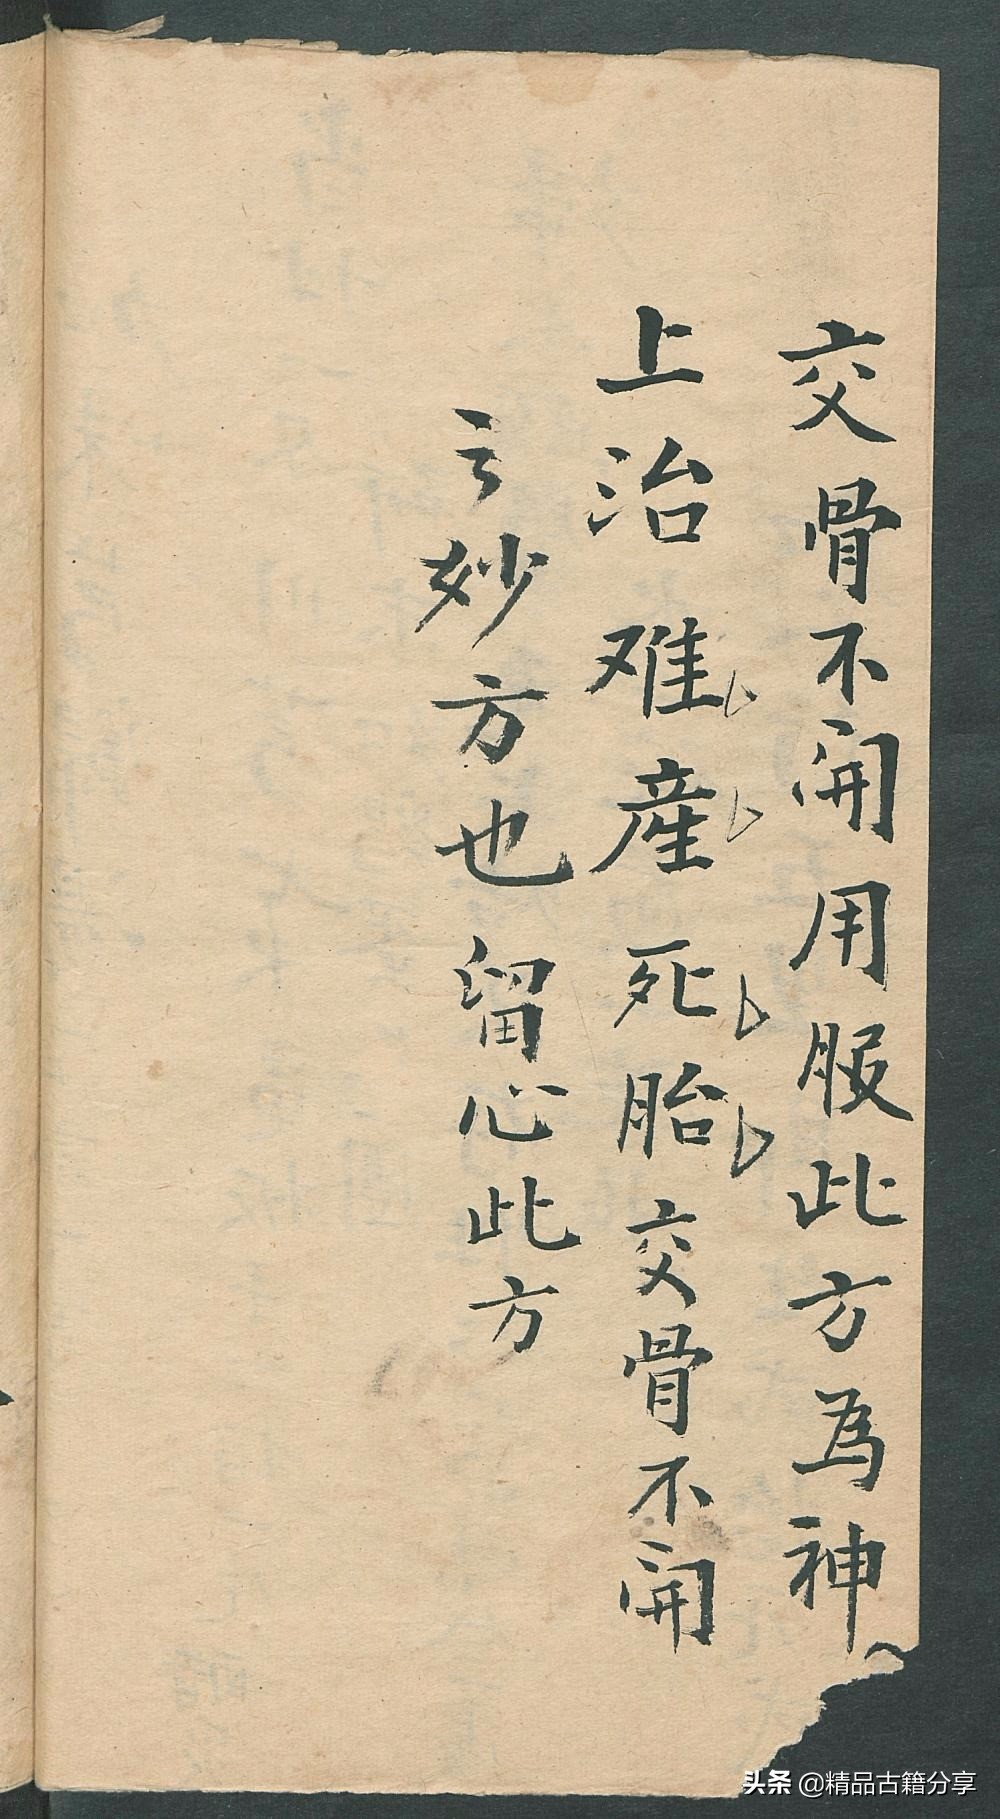 交骨不開用服此方為神
上治难產死胎交骨不開
之妙方也留心此方
头条 @精品古籍分享